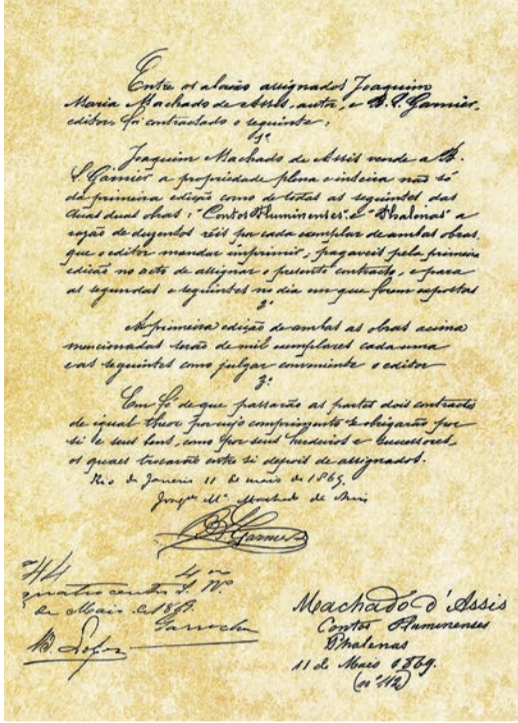 Entre os abaixo assignados Joaquim
Maria Machado de Assis, autor, e B. L. Garnier,
editor foi contractado o seguinte:
1º
Joaquim Machado de Assis vende a B.
L. Garnier a propriedade plena e inteira não só
da primeira edição como de todas as seguintes das
duas obras: "Contos Fluminenses" e "Phalenas" a
razão de duzentos réis por cada exemplar de ambas obras,
que o editor mandar imprimir, pagaveis pela primeira
edicão no acto de assignar o presente contracto, e para
as segundas e seguintes no dia em que forem expostas
2º
A primeira edição de ambas as obras acima
mencionadas serão de mil exemplares cada uma
e as seguintes como julgar conveniente o editor
3º
Em fé de que passarão as partes dois contractos
de igual theor por cujo comprimento se obrigarão por
si e seus bens, como por seus herdeiros e successores,
os quaes trocarão entre si depois de assignados.
Rio de Janeiro 11 de maio de 1869.
Joaqm Mª Machado de Assis
B L Garnier
44 4 00
quatrocentos
de Maio de 1869.
Machado d'Assis
Contos Fluminenses
Phalenas
11 de Maio 1869.
(nº 112)